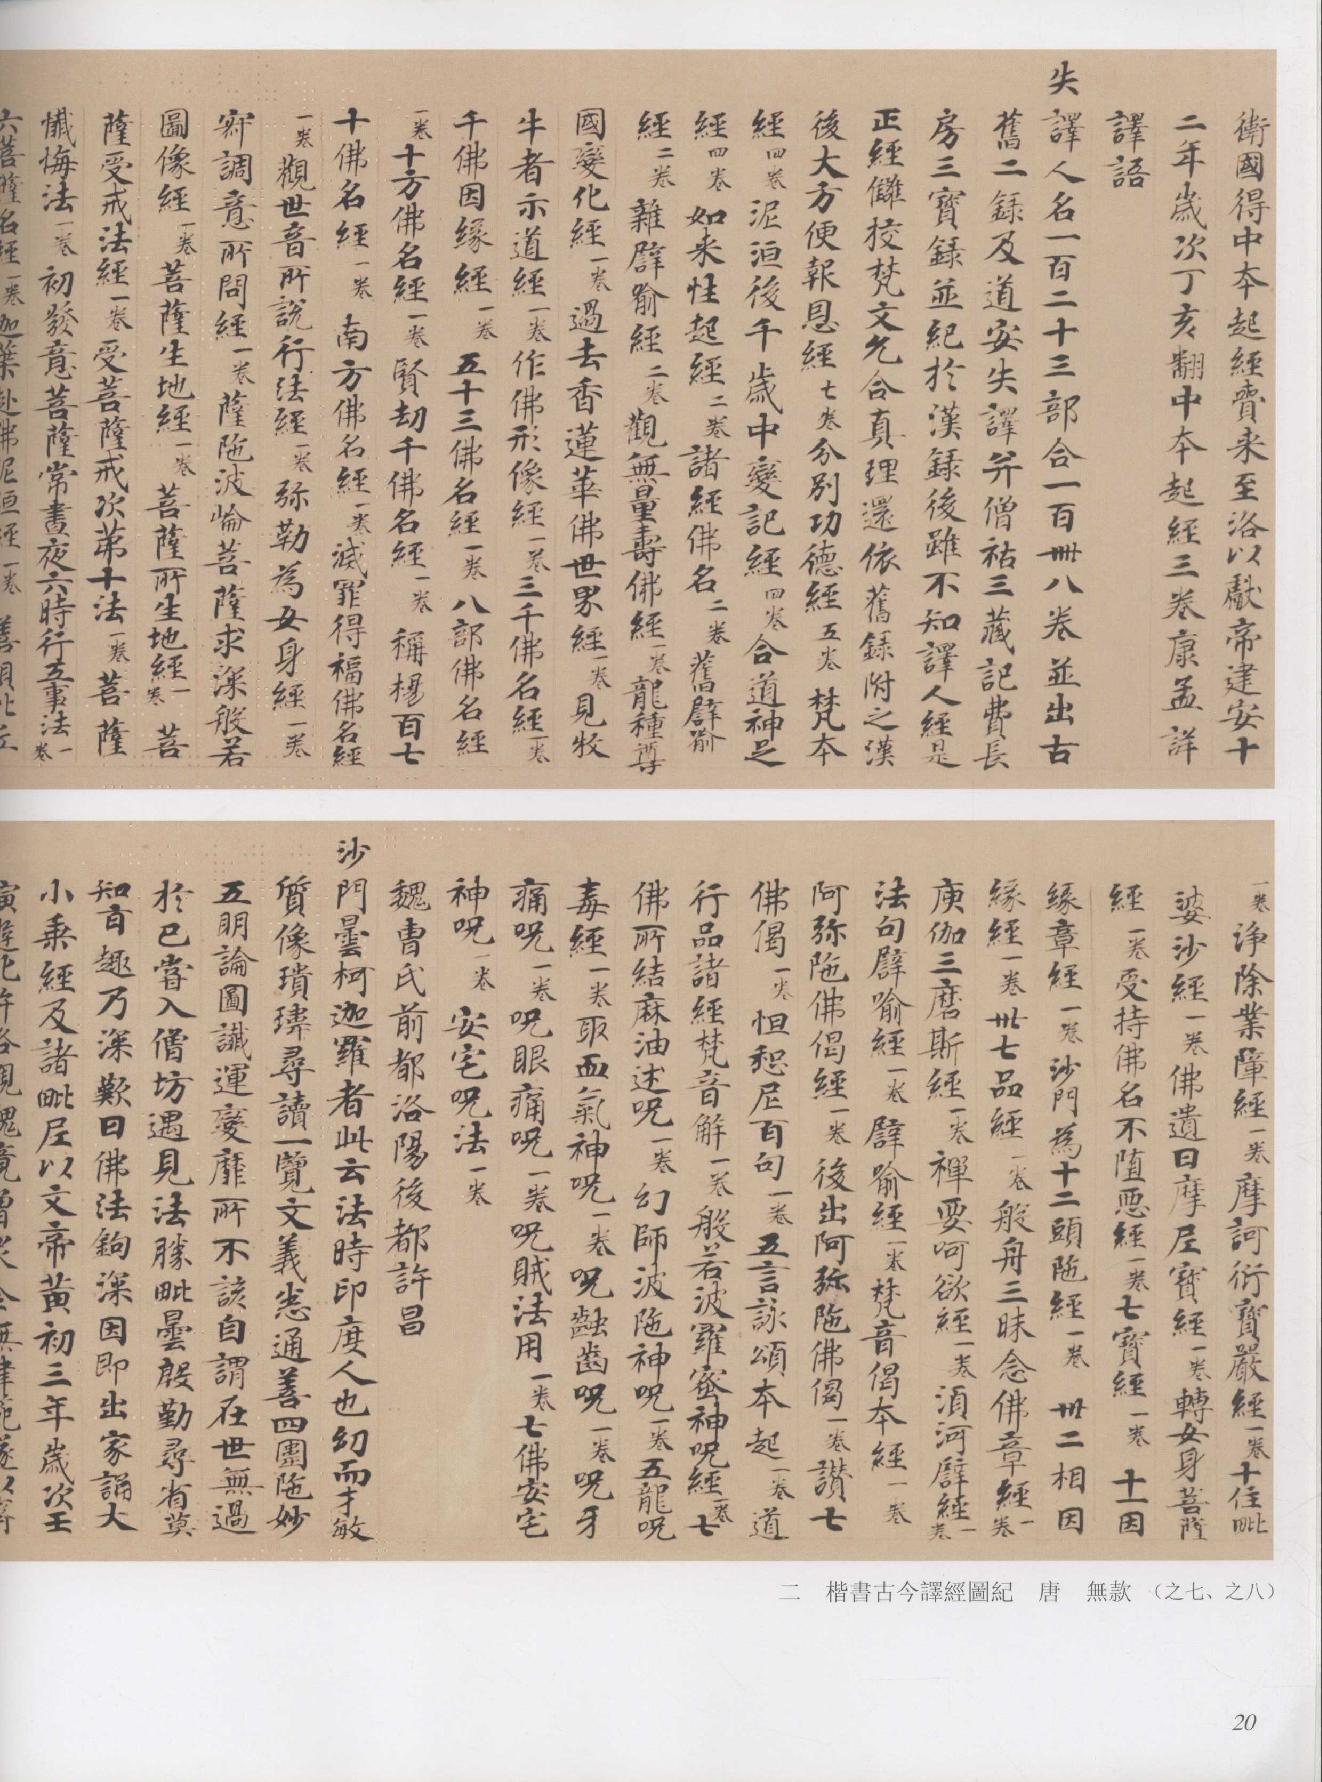 衛國得中本起經賷来至洛以獻帝建安十
二年歲次丁亥翻中本起經三卷康孟詳
譯語
失譯人名一百二十三部合一百卌八卷並出古
舊二録及道安失譯并僧祐三藏記費長
房三寶録並紀於漢録後雖不知譯人經是
正經讎挍梵文允合真理還依舊録附之漢
後大方便報恩經七卷分別功德經五卷梵本
經四卷泥洹後千歲中變記經四卷合道神足
經四卷如来性起經二卷諸經佛名二卷舊譬喻
經二卷雜譬喻經二卷觀無量壽佛經一卷龍種尊
國變化經一卷過去香蓮華佛世界經一卷見牧
牛者示道經一卷作佛形像經一卷三千佛名經一卷
千佛因緣經一卷五十三佛名經一卷八部佛名經
一卷十方佛名經一卷賢劫千佛名經一卷稱揚百七
十佛名經一卷南方佛名經一卷滅罪得福佛名經
一卷觀世音所說行法經一卷弥勒為女身經一卷
寂調意所問經一卷薩陁波崘菩薩求深般若
圖像經一卷菩薩生地經一卷菩薩所生地經一卷菩
薩受戒法經一卷受菩薩戒次第十法一卷菩薩
懺悔法一卷初發意菩薩常晝夜六時行五事法一卷
六菩薩名經一卷迦葉赴佛泥洹經一卷
一卷淨除業障經一卷摩訶衍寶嚴經一卷十住毗
婆沙經一卷佛遺日摩尼寶經一卷轉女身菩薩
經一卷受持佛名不墮惡經一卷七寶經一卷十一因
緣章經一卷沙門為十二頭陁經一卷卅二相因
緣經一卷卅七品經一卷般舟三昧念佛章經一卷
庚伽三磨斯經一卷禪要呵欲經一卷湏河譬經一卷
法句譬喻經一卷譬喻經一卷梵音偈本經一卷
阿弥陁佛偈經一卷後出阿弥陁佛偈一卷讃七
佛偈一卷怛惒尼百句一卷五言詠頌本起一卷道
行品諸經梵音解一卷般若波羅蜜神呪經一卷七
佛所結麻油述呪一卷幻師波陁神呪一卷五龍呪
毒經一卷取血氣神呪一卷呪齲齒呪一卷呪牙
痛呪一卷呪眼痛呪一卷呪賊法用一卷七佛安宅
神呪一卷安宅呪法一卷
魏曹氏前都洛陽後都許昌
沙門曇柯迦羅者此云法時印度人也幼而才敏
質像瓌瑋尋讀一覽文義悉通善四圍陁妙
五明論圖讖運變靡所不該自謂在世無過
於巳嘗入僧坊遇見法勝毗曇殷勤尋省莫
知旨趣乃深歎曰佛法鉤深因即出家誦大
小乘經及諸毗尼以文帝黃初三年歲次壬
二 楷書古今譯經圖紀 唐 無款 （之七、之八）
20